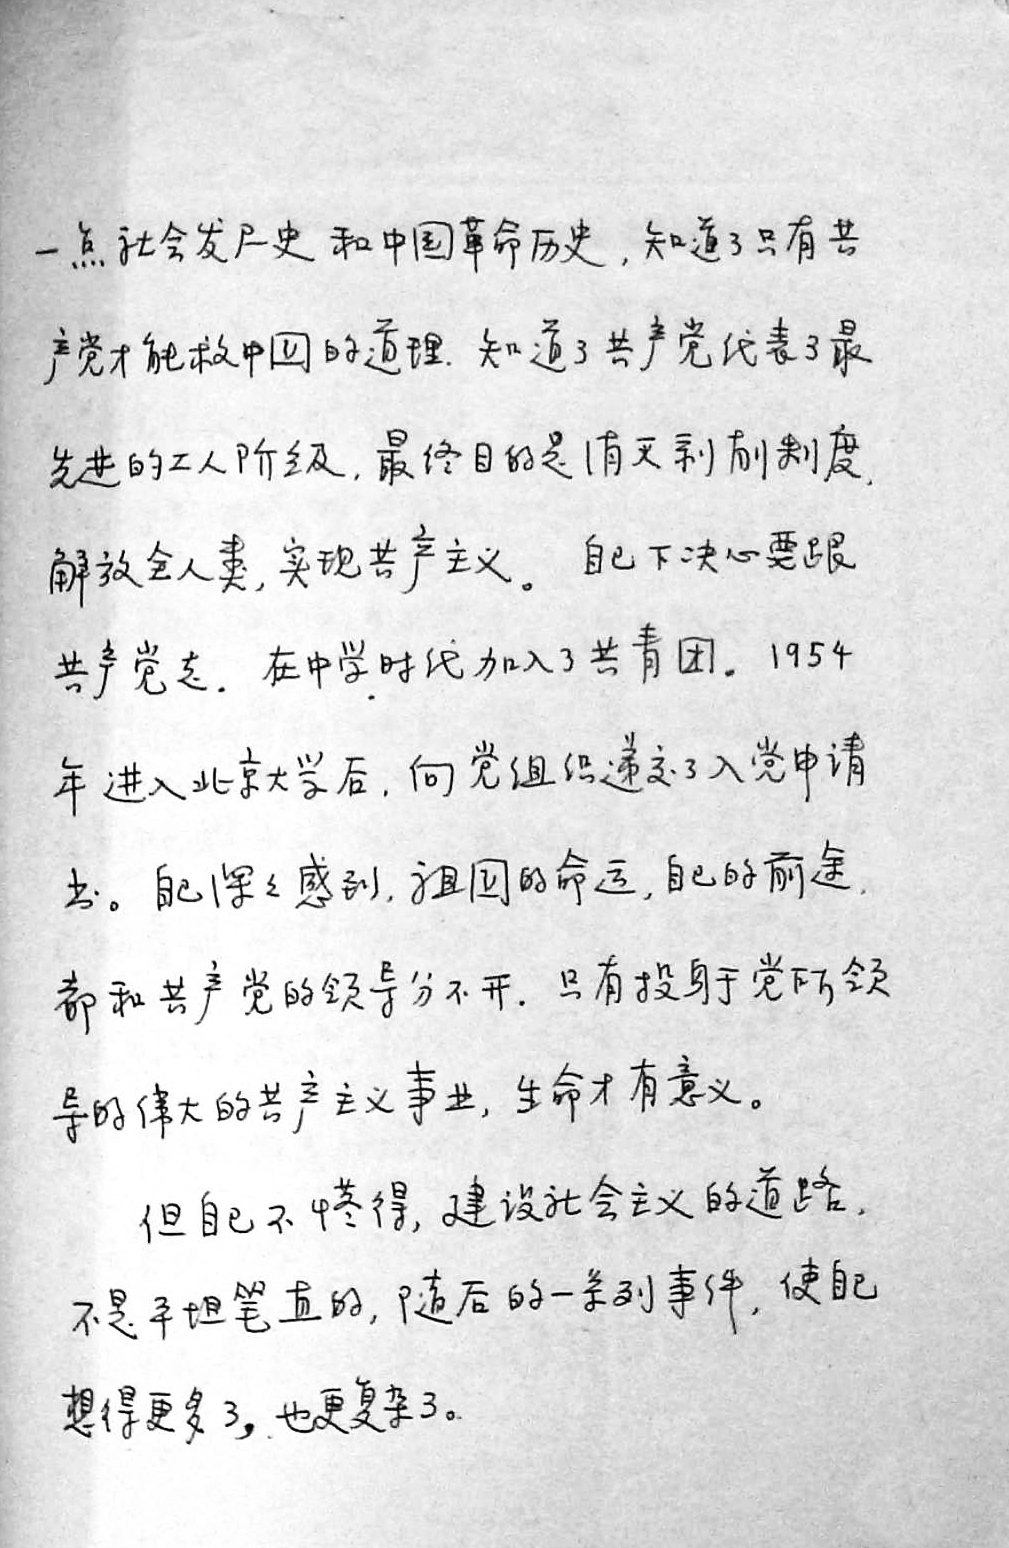 一点社会发尸史和中国革命历史，知道了只有共
产党才能救中国的道理．知道了共产党代表了最
先进的工人阶级，最终目的是消灭剥削制度，
解放全人类，实现共产主义。自己下决心要跟
共产党走．在中学时代加入了共青团。1954
年进入北京大学后，向党组织递交了入党申请
书。自己深々感到，祖国的命运，自己的前途，
都和共产党的领导分不开．只有投身于党所领
导的伟大的共产主义事业，生命才有意义。
但自己不懂得，建设社会主义的道路，
不是平坦笔直的，随后的一系列事件，使自己
想得更多了，也更复杂了。